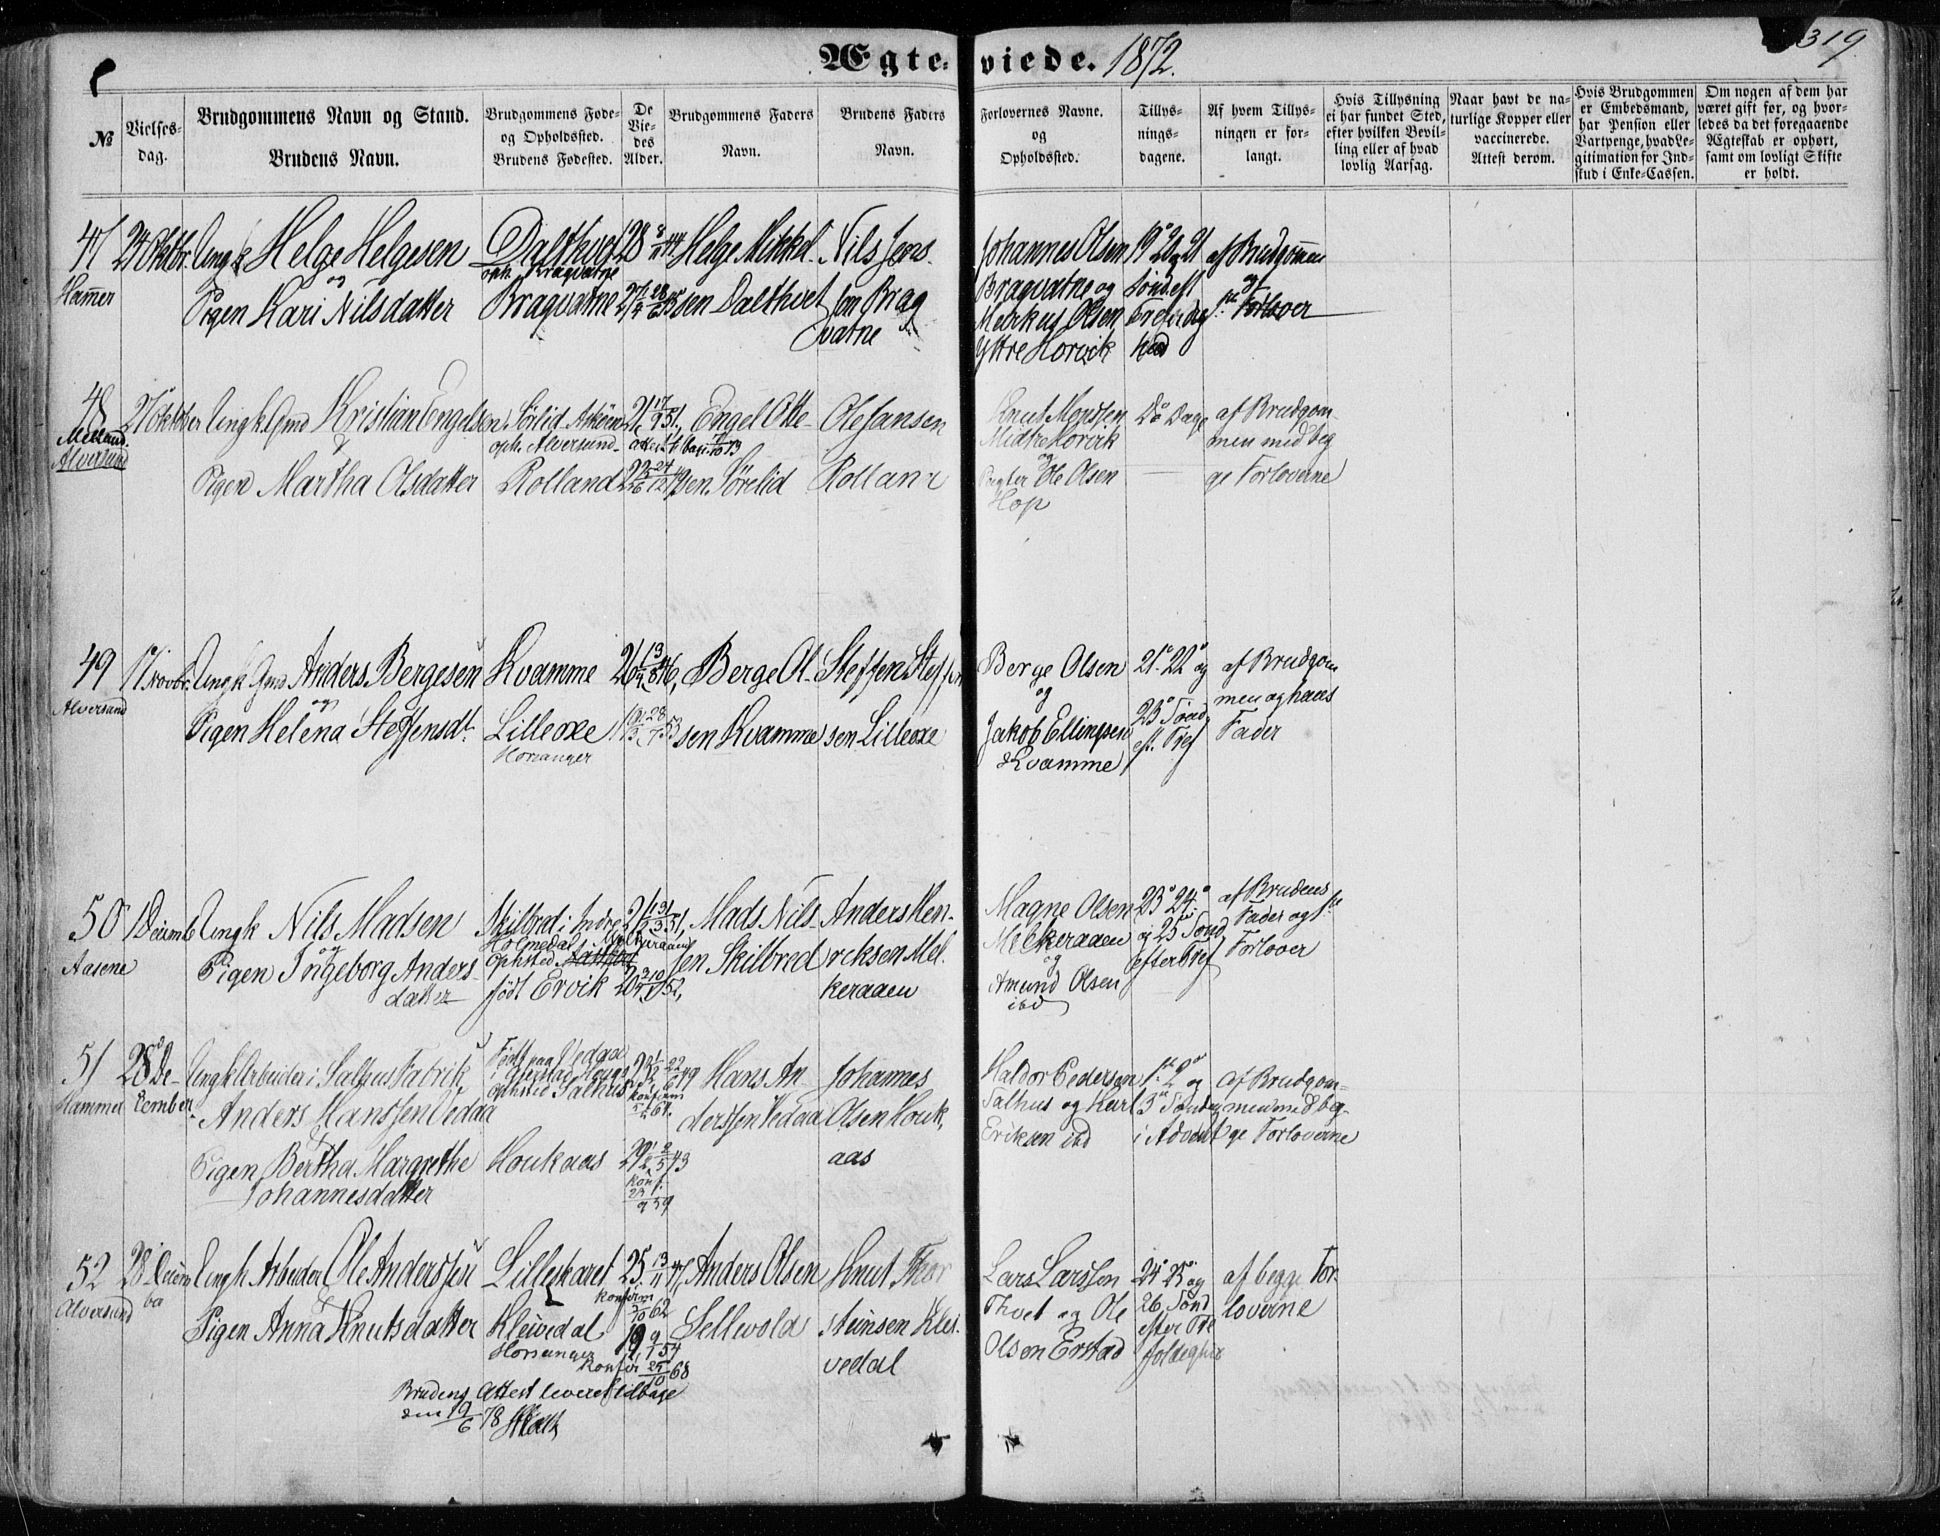 Ægte-viede. 1872.
319.
№
Vielses-dag.
Brudgommens Navn og Stand.
Brudens Navn.
Brudgommens Føde-
og Opholdssted.
Brudens Fødested.
De Vie-des Alder.
Brudgommens Faders
Navn.
Brudens Faders
Navn.
Forlovernes Navne.
og
Opholdssted.
Tillys-
nings-
dagene.
Af hvem Tillys-
ningen er for-
langt.
Hvis Tillysning
ei har fundet Sted,
efter hvilken Bevil-
ling eller af hvad
lovlig Aarsag.
Naar havt de na-
turlige Kopper eller
vaccinerede.
Attest derom.
Hvis Brudgommen
er Embedsmand,
har Pension eller
Vartpenge, hvad Le-
gitimation for Ind-
skud i Enke-Cassen.
Om nogen af dem har
været gift før, og hvor-
ledes da det foregaaende
Ægteskab er ophørt,
samt om lovligt Skifte
er holdt.
47
Hamer
24 Oktbr.
Ungk Helge Helgesen
og
Pigen Kari Nilsdatter
Dalthvet
oph. Bragvatne
Bragvatne
28
27
Helge Mikkel-
sen Dalthvet
Nils Jens-
søn Brag
vatne
Johannes Olsen
Bragvatne og
Markus Olsen
Ytre Horvik
19 20 og 21
Sønd. eft
Trefoldig
hed
af Brudgommen
og
1ste Forlover
48
Meland.
Alversund
27 Oktober
Ungk. Gmd Kristian Engelsen
&
Pigen Martha Olsdatter
Sørlid Askøen
oph. Alversund
Rolland
21 17/9 51,
22 24/12 49
Engel Otte-
sen Sørelid
Ole Jansen
Rolland
Knut Monssen
Midtre Horvik
og
Ole Olsen
Hop
Do Dage
af Brudgom
men med beg
ge Forloverne
49
Alversund
17 Novbr.
Ungk Gmd Anders Bergesen
og
Pigen Helena Steffensdt.
Kvamme
Lilleoxe
Hosanger
26 46,
19 28/7 53
Berge Ol-
sen Kvamme
Steffen Steffen
sen Lilleoxe
Berge Olsen
og
Jakob Ellingsen
Kvamme
21. 22 og
23 Sønd.
eft. Tref
af Brudgom
men og hans
Fader
50
Aasene
1 Decemb
Ungk Nils Madsen
og
Pigen Ingeborg Anders-
datter
Skilbred i Indre
Holmedal
Ophsted
født Ervik
21 51,
20 52,
Mads Nils-
sen Skilbred
Anders Hen-
riksen Mel-
keraaen
Magne Olsen
Melkeraaen
og
Amund Olsen
ibd
23 24
og 25 Sønd
efter Tref
af Brudens
Fader og 1ste
Forlover
51
Hammer
28 De-
cember
Ungk Arbeider i Salhus Fabrik,
Anders Hanssen Vedaa
&
Pigen Bertha Margrethe
Johannesdatter
Født paa Vedaa
ophsted Salhus
Houkaas
22/6 49
konfirm
64.
29 2/5 43
konf.
59
Hans An-
derssen Vedaa
Johannes
Olsen Houk,
aas
Haldor Pedersen
Salhus og Karl
Eriksen ibd
1ste 2 og
3 Søndag
i Advent
af Brudgom-
men med beg-
ge Forloverne
52
Alversund
28 Decem
ber
Ungk Arbeider Ole Anderssen
&
Pigen Anna Knutsdatter
Lilleskaret
Kleivedal
Hosanger
25 13/11 47
konfirm
5/10 62
19 9/1 54
Konfir 25/10 68
Anders Olsen
Sellevold
Knut Thor
steinsen Klei-
vedal
Lars Larssen
Thvet og Ole
Olsen Erstad
24 25 og
26 Sønd
efter Tre
foldighed
af begge For-
loverne
Brudens Attest leveret tilbage
den 19/6 78